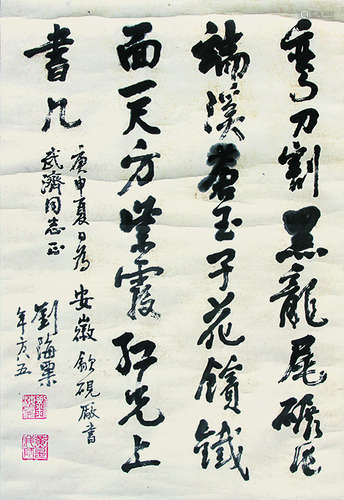 刀割黑龍尾碾
端溪蒼玉子花鑌鐵
面一尺方紫霞紅光上
書几
庚申夏日為安徽歙硯厰書
武濟同志正
劉海粟
年方八五